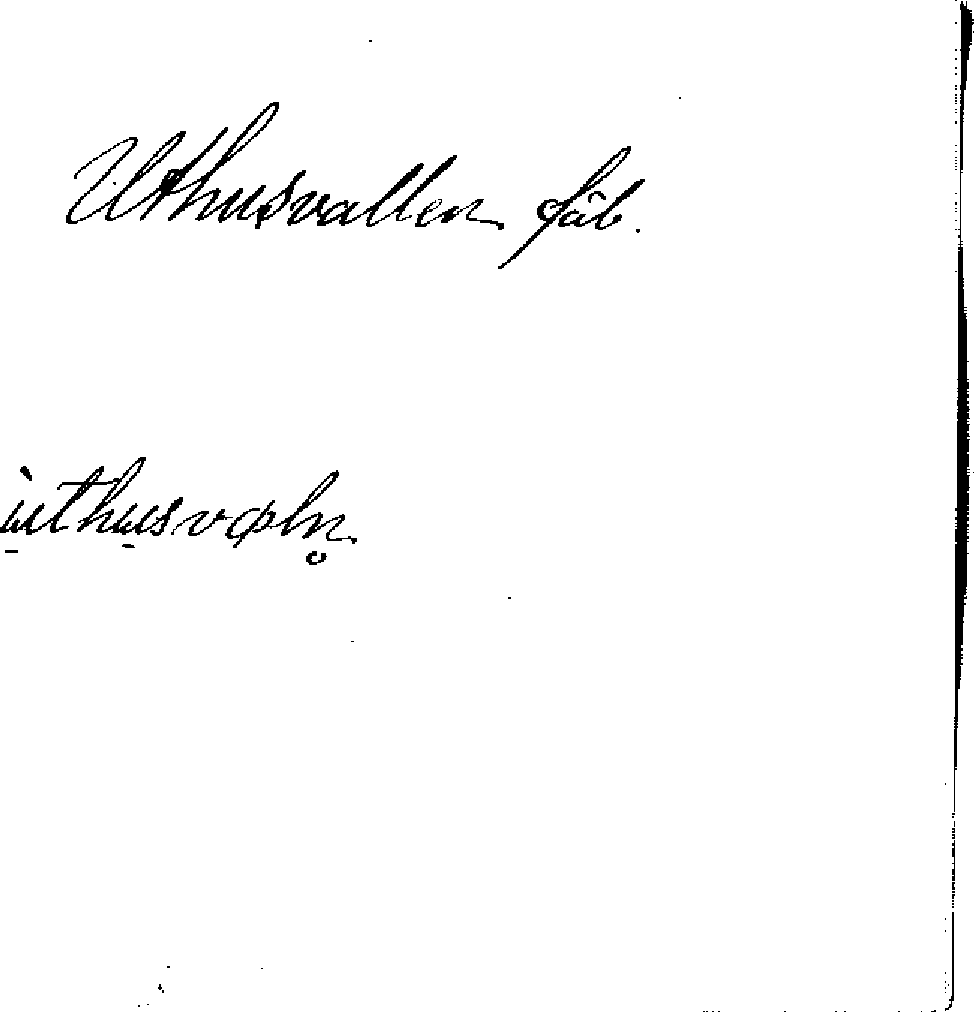 Uthusvallen fäb.
ùthusvaln̥